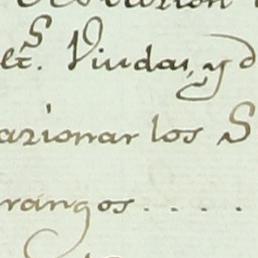 et.S Viudas, y d
azionar los S
rangos . . . .